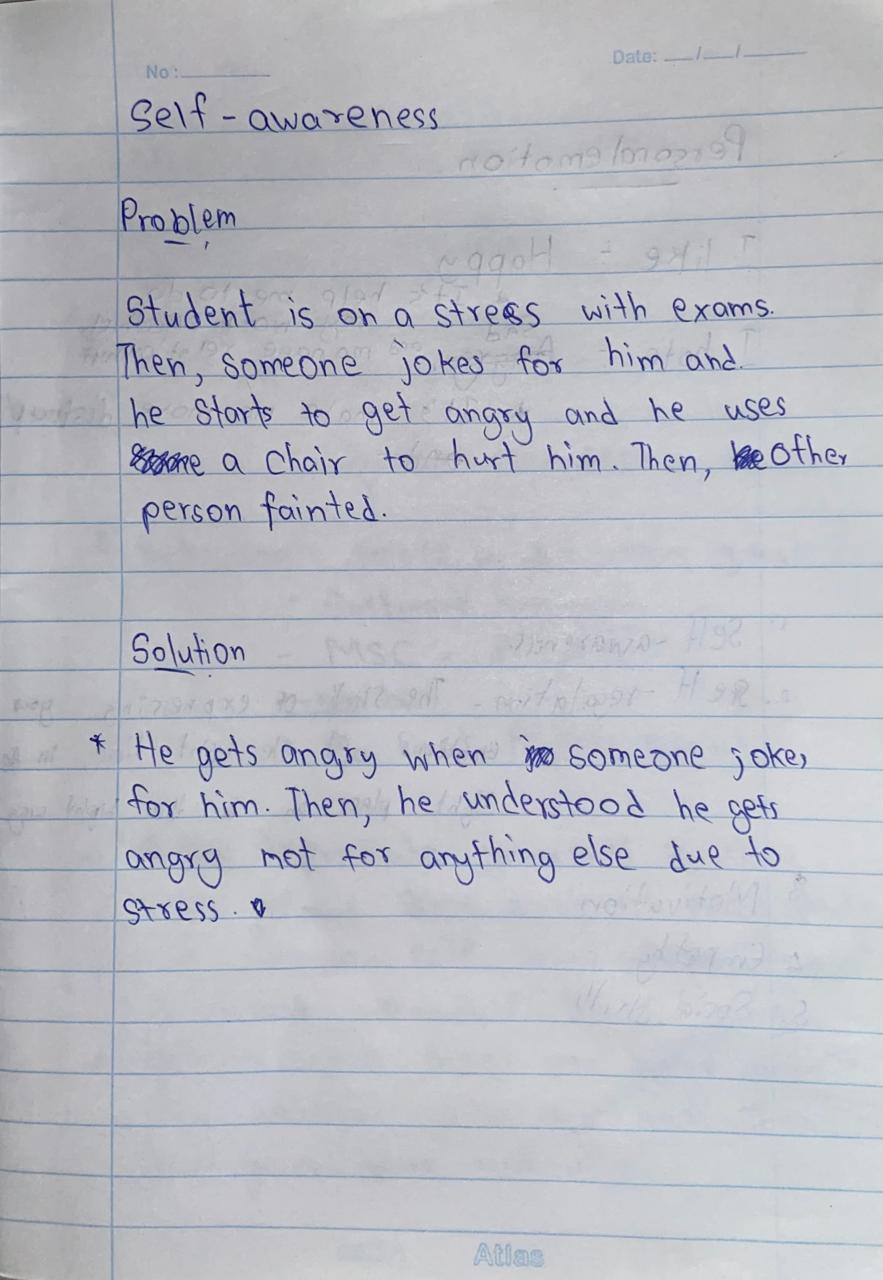 No:
Date: __/__/____
Self - awareness
Problem
Student is on a stress with exams.
Then, someone jokes for him and.
he starts to get angry and he uses
a chair to hurt him. Then, Other
person fainted.
Solution
* He gets angry when someone joke,
for him. Then, he understood he gets
angry not for anything else due to
stress.
Atlas